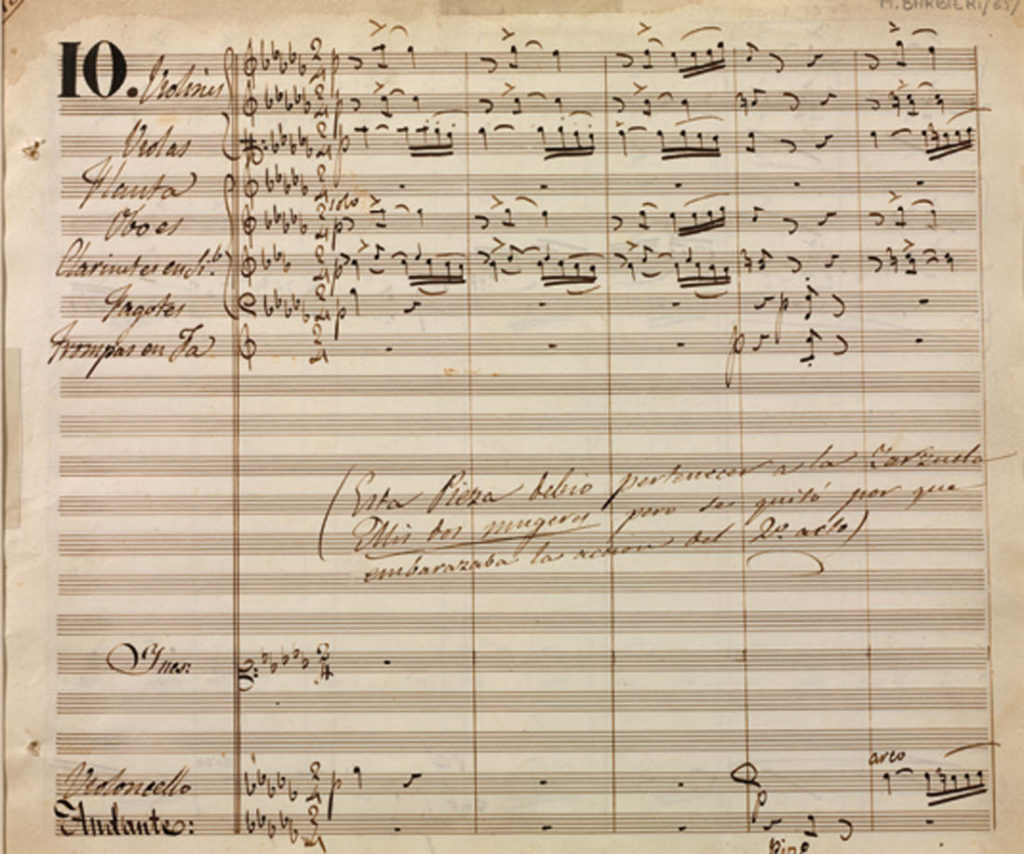 M. BARBIERI/65/
10. Violines
Violas
Flauta
solo
Oboes
Clarinetes en Si b
Fagotes
Trompas en Fa
(Esta Pieza debio pertenecer a la Zarzuela
Mis dos mugeres pero se quitó por que
embarazaba la accion del 2º acto)
Ines:
arco
Violoncello
Andante: